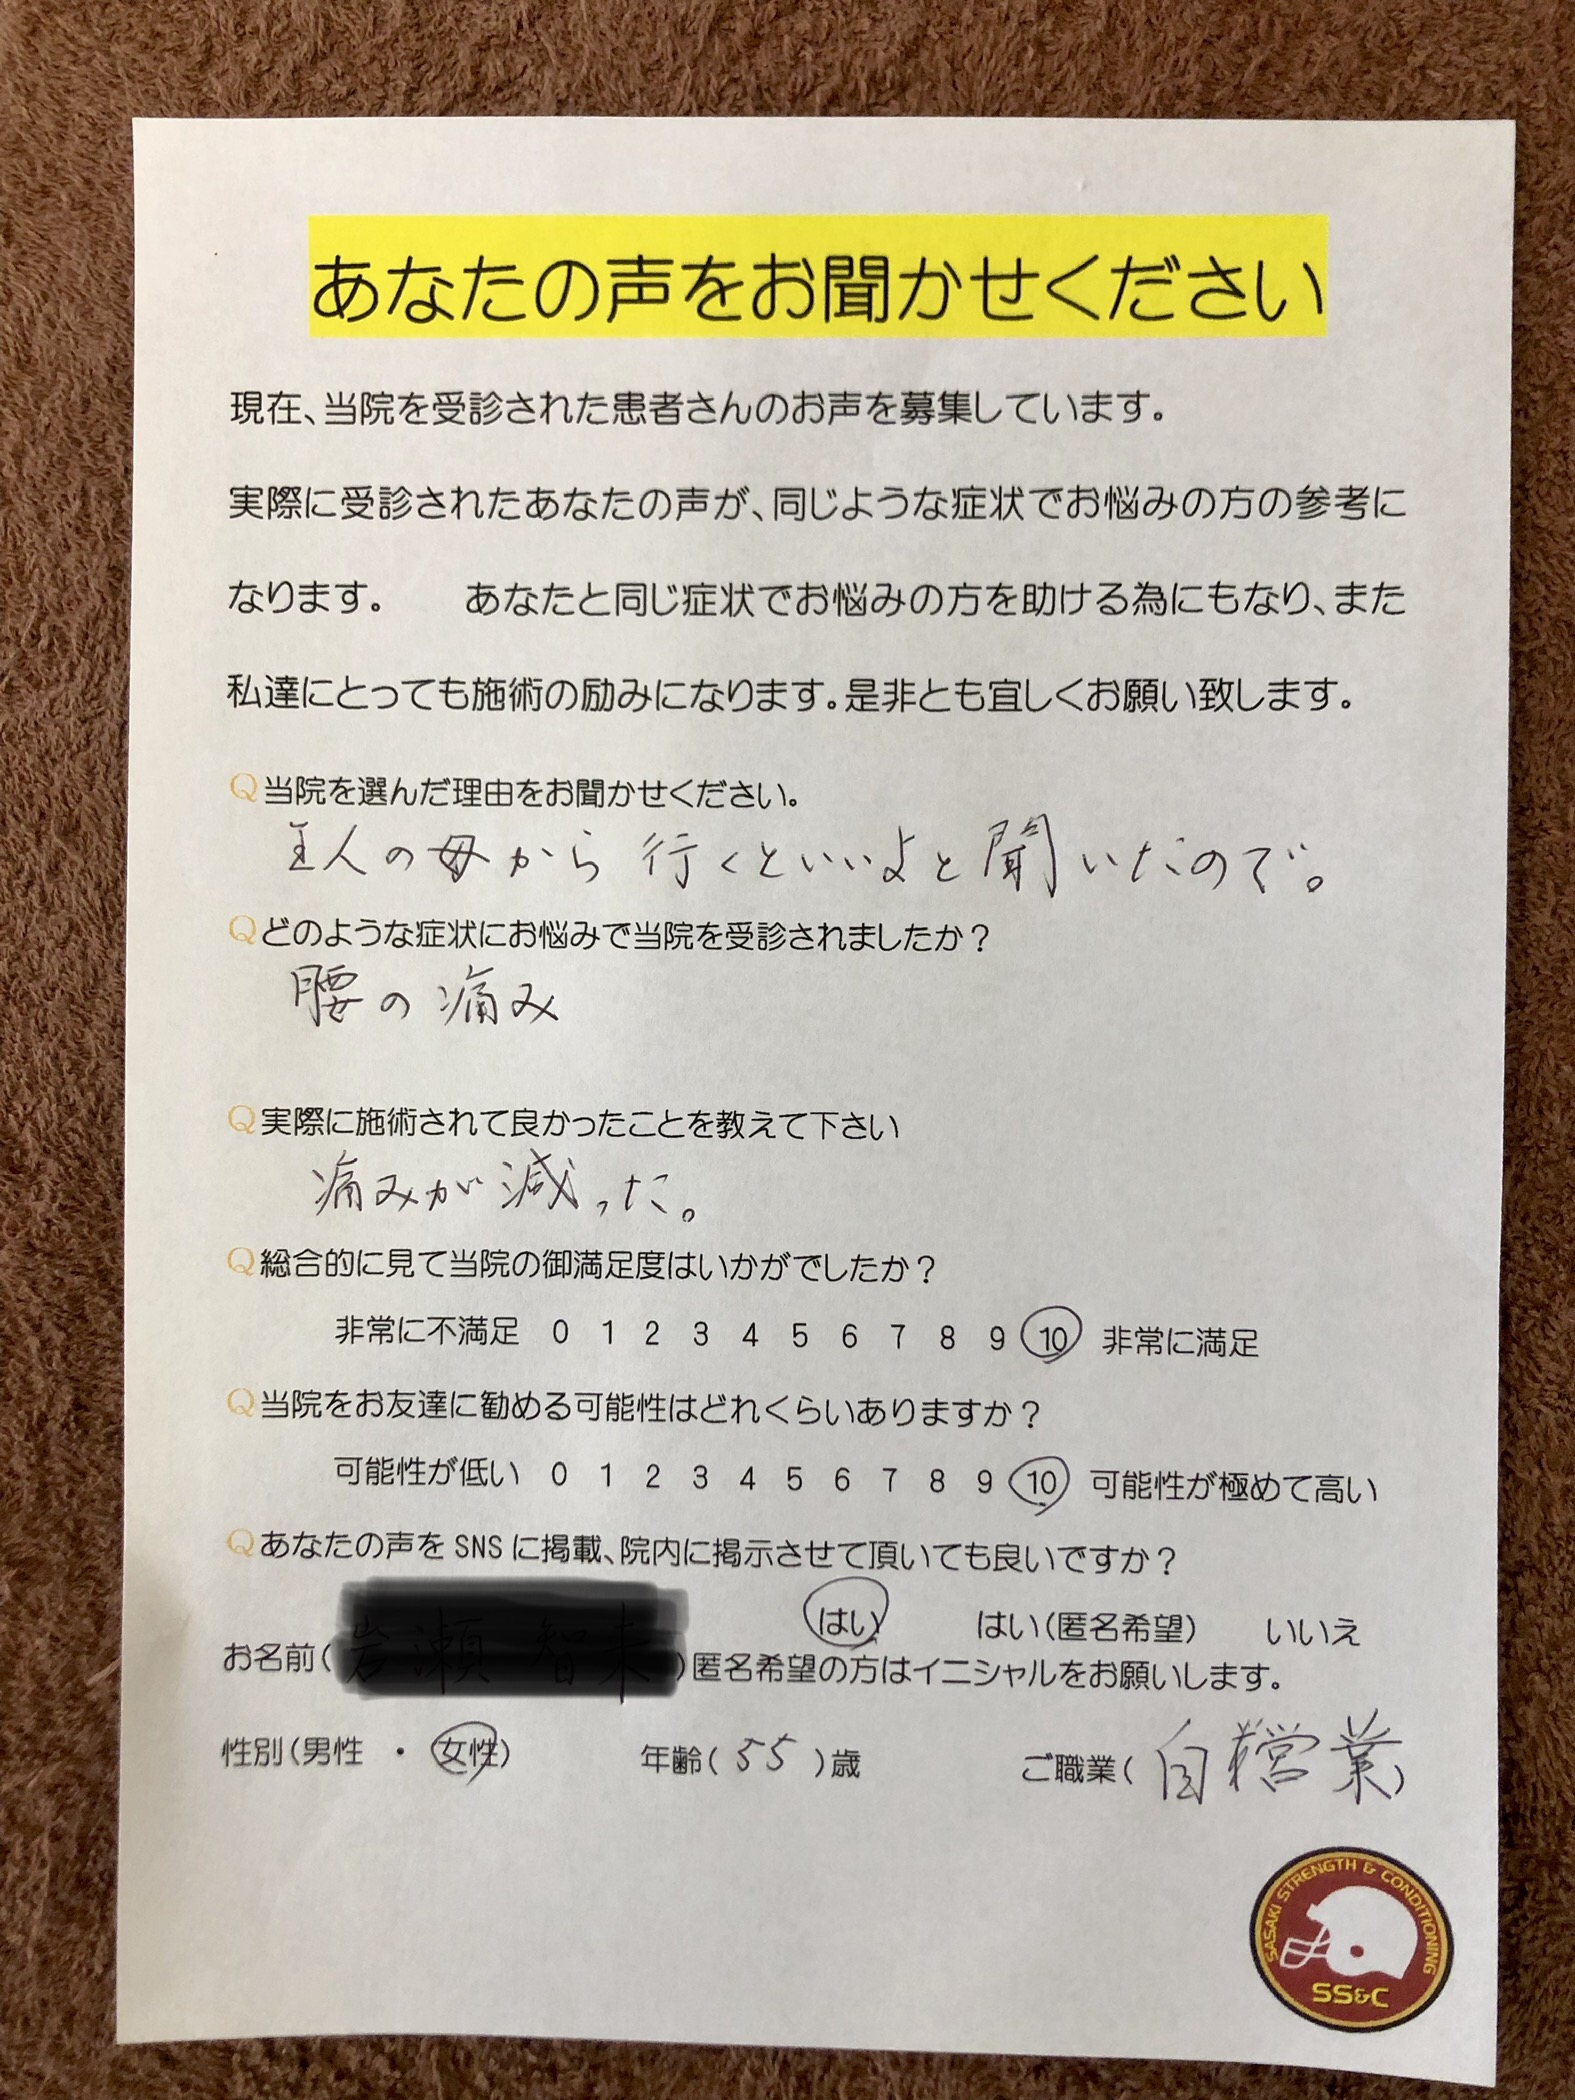 あなたの声をお聞かせください
現在、当院を受診された患者さんのお声を募集しています。
実際に受診されたあなたの声が、同じような症状でお悩みの方の参考に
なります。　　あなたと同じ症状でお悩みの方を助ける為にもなり、また
私達にとっても施術の励みになります。是非とも宜しくお願い致します。
Q当院を選んだ理由をお聞かせください。
主人の母から行くといいよと聞いたので。
Qどのような症状にお悩みで当院を受診されましたか？
腰の痛み
Q実際に施術されて良かったことを教えて下さい
痛みが減った。
Q総合的に見て当院の御満足度はいかがでしたか？
非常に不満足 0 1 2 3 4 5 6 7 8 9 10 非常に満足
Q当院をお友達に勧める可能性はどれくらいありますか？
可能性が低い 0 1 2 3 4 5 6 7 8 9 10 可能性が極めて高い
Qあなたの声をSNSに掲載、院内に掲示させて頂いても良いですか？
はい　はい（匿名希望）　いいえ
お名前（　）匿名希望の方はイニシャルをお願いします。
性別（男性 ・ 女性）　年齢（55）歳　ご職業（自営業）
SASAKI STRENGTH & CONDITIONING
SS&C